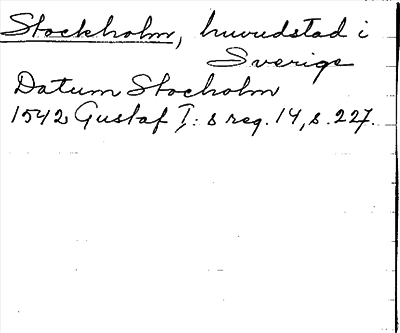 Stockholm, huvudstad i
Sverige
Datum Stocholm
1542 Gustaf I: s reg. 14, s. 227.